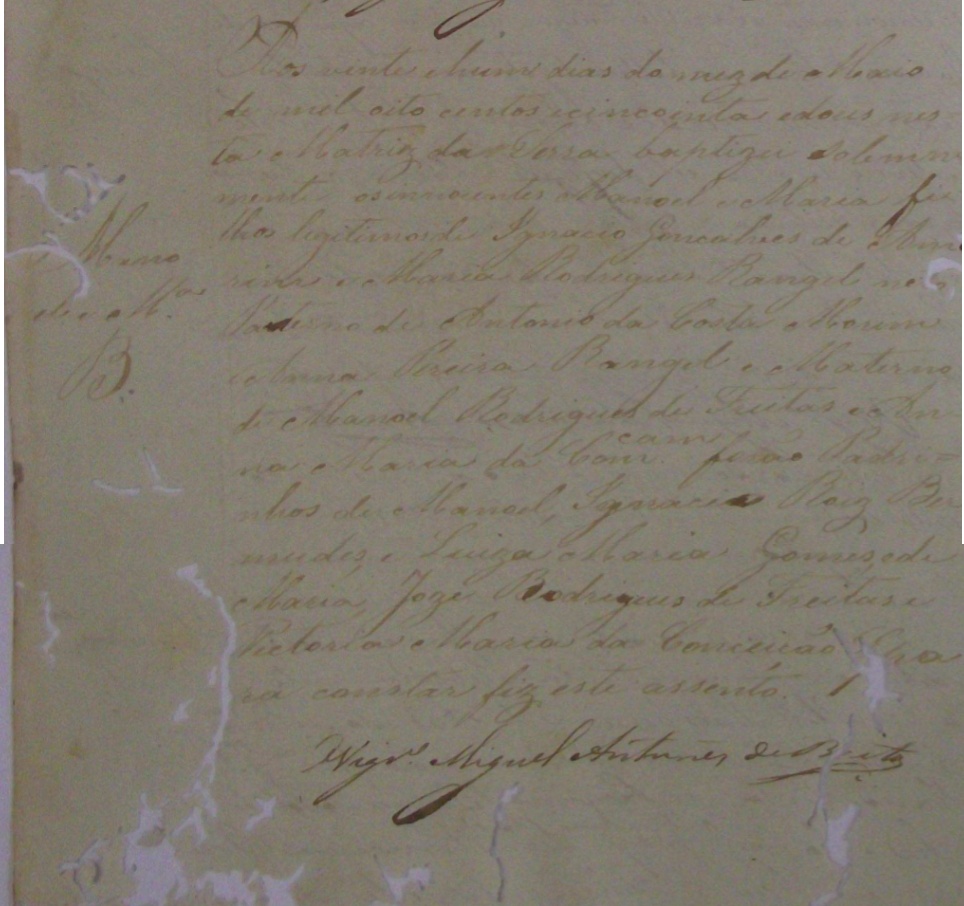 Aos vinte e hum dias do mez de Maio
de mil oito centos e cincoenta e dous nes=
ta Matriz da Serra baptizei solemne
mente os innocentes Manoel e Maria fi
lhos legitimos de Ignacio Goncalves de Amo
rim e Maria Rodrigues Rangel
Paterno de Antonio da Costa
e Anna Pereira Rangel e Materno
de Manoel Rodrigues de Freitas e An
na Maria da Com. forão Padri=
cam
nhos de Manoel, Ignacio Roiz Ber
mudes, e Luiza Maria Gomes, e de
Maria, Joze Rodrigues de Freitas e
Victoria Maria da Conceicão. E pa
ra constar fiz este assento.
Vigr.º Miguel Antunes de Brito
Mano
el e M.ª
B.